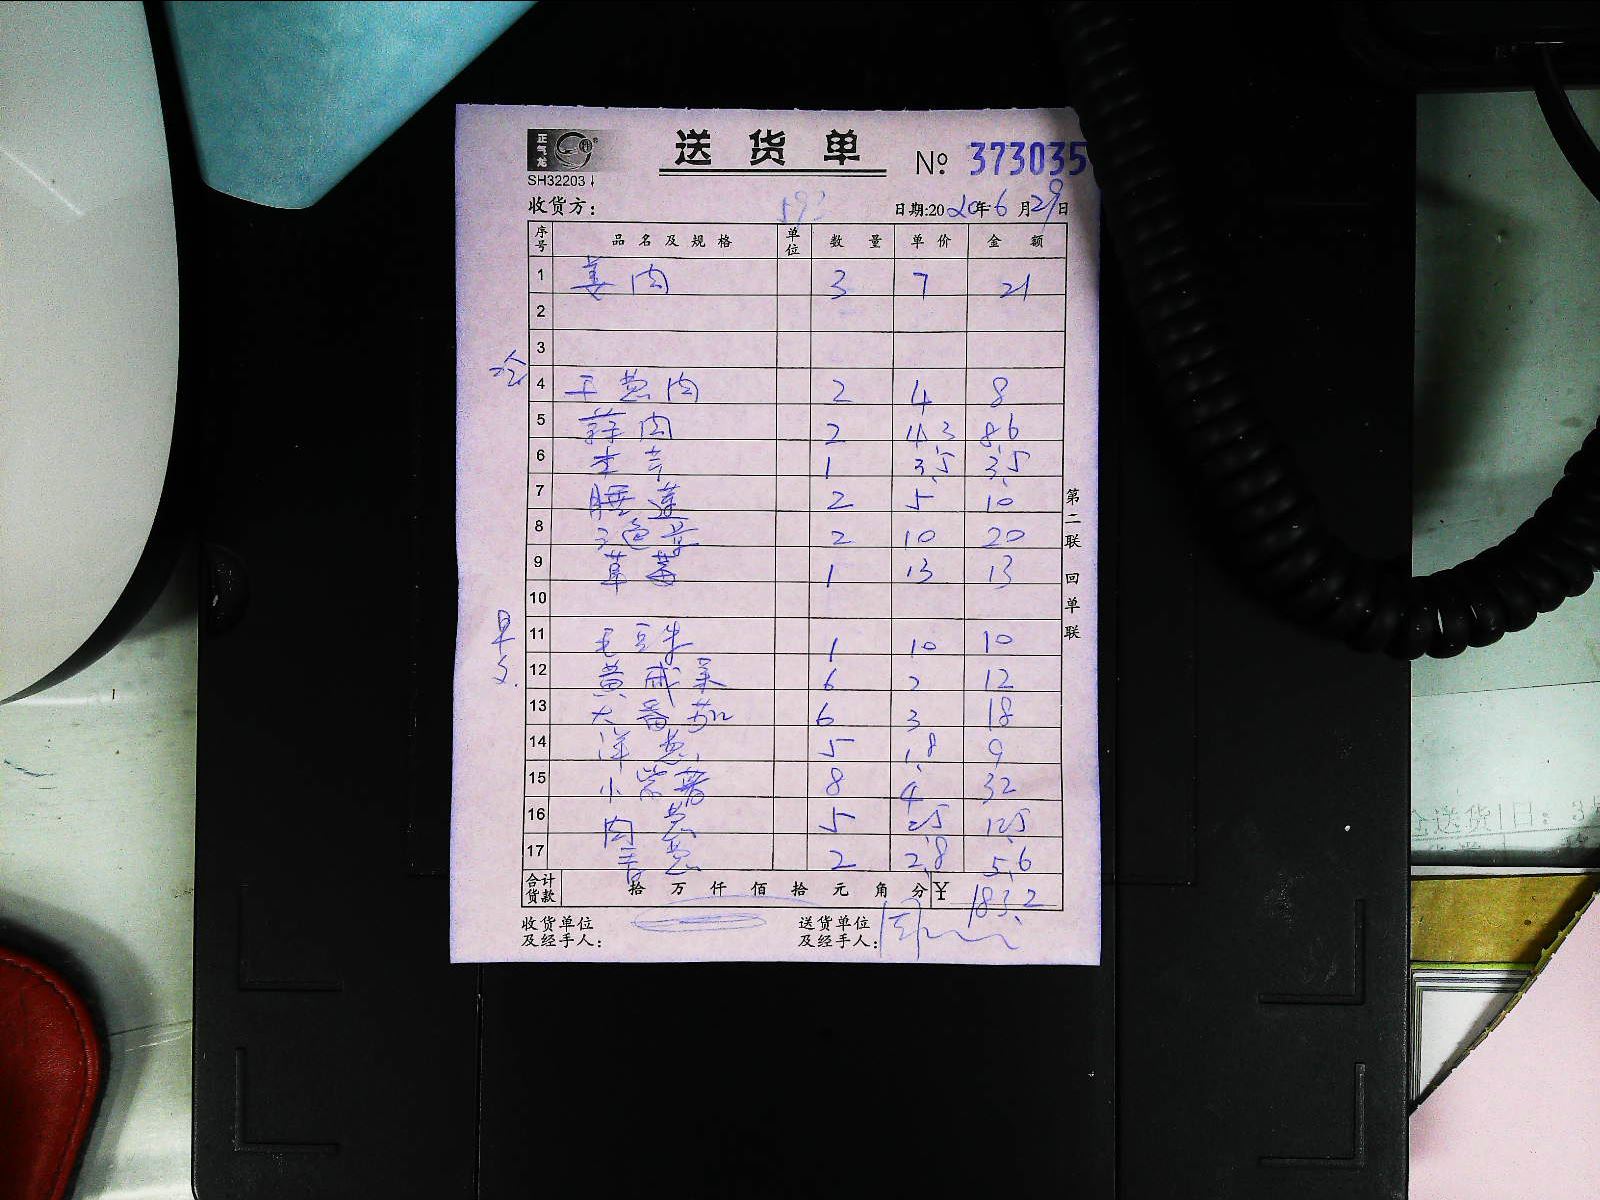 正气龙
送货单 № 373035
SH32203
收货方: 日期:2020年6月29日
序号 品名及规格 单位 数量 单价 金额
1 姜肉 3 7 21
2
3
4 干葱肉 2 4 8
5 蒜肉 2 4.3 8.6
6 1 3.5 3.5
7 睡莲 2 5 10
8 三色堇 2 10 20
9 草莓 1 13 13
10
11 1 10 10
12 6 2 12
13 大番茄 6 3 18
14 洋葱 5 1.8 9
15 小紫薯 8 4 32
16 肉葱 5 2.5 12.5
17 香葱 2 2.8 5.6
合计货款 拾万仟佰拾元角分 ¥ 183.2
收货单位及经手人: 送货单位及经手人:
第二联 回单联